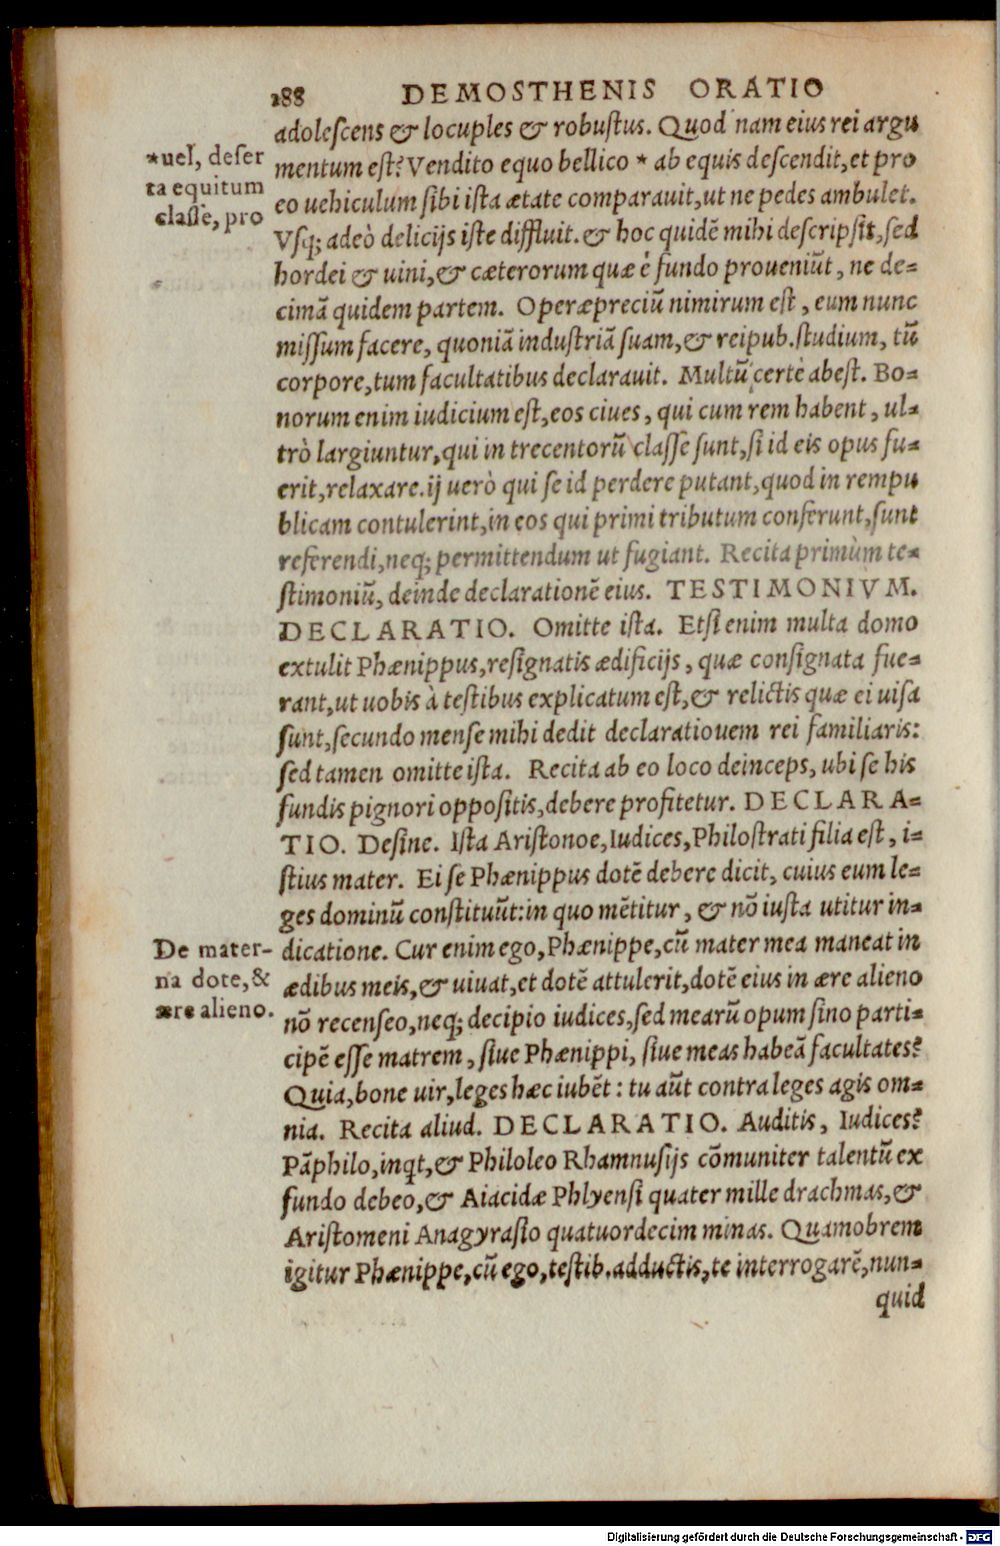 288 DEMOSTHENIS ORATIO
adolescens & locuples & robustus. Quod nam eius rei argu
*uel, deser
mentum est? Vendito equo bellico * ab equis descendit, et pro
ta equitum
eo uehiculum sibi ista ætate comparauit, ut ne pedes ambulet.
classe, pro
Vsq; adeò delicijs iste diffluit. & hoc quidẽ mihi descripsit, sed
hordei & uini, & cæterorum quæ è fundo proueniũt, ne de=
cimã quidem partem. Operæpreciũ nimirum est, eum nunc
missum facere, quoniã industriã suam, & reipub. studium, tũ
corpore, tum facultatibus declarauit. Multũ certè abest. Bo=
norum enim iudicium est, eos ciues, qui cum rem habent, ul=
trò largiuntur, qui in trecentorũ classe sunt, si id eis opus fu=
erit, relaxare. ij uerò qui se id perdere putant, quod in rempu
blicam contulerint, in eos qui primi tributum conferunt, sunt
referendi, neq; permittendum ut fugiant. Recita primùm te=
stimoniũ, deinde declarationẽ eius. TESTIMONIVM.
DECLARATIO. Omitte ista. Etsi enim multa domo
extulit Phænippus, resignatis ædificijs, quæ consignata fue=
rant, ut uobis à testibus explicatum est, & relictis quæ ei uisa
sunt, secundo mense mihi dedit declaratiouem rei familiaris:
sed tamen omitte ista. Recita ab eo loco deinceps, ubi se his
fundis pignori oppositis, debere profitetur. DECLARA=
TIO. Desine. Ista Aristonoe, Iudices, Philostrati filia est, i=
stius mater. Ei se Phænippus dotẽ debere dicit, cuius eum le=
ges dominũ constituũt: in quo mẽtitur, & nõ iusta utitur in=
De mater-
dicatione. Cur enim ego, Phænippe, cũ mater mea maneat in
na dote, &
ædibus meis, & uiuat, et dotẽ attulerit, dotẽ eius in ære alieno
ære alieno.
nõ recenseo, neq; decipio iudices, sed mearũ opum sino parti=
cipẽ esse matrem, siue Phænippi, siue meas habeã facultates?
Quia, bone uir, leges hæc iubẽt: tu aũt contra leges agis om=
nia. Recita aliud. DECLARATIO. Auditis, Iudices?
Pãphilo, inqt, & Philoleo Rhamnusijs cõmuniter talentũ ex
fundo debeo, & Aiacidæ Phlyensi quater mille drachmas, &
Aristomeni Anagyrasio quatuordecim minas. Quamobrem
igitur Phænippe, cũ ego, testib. adductis, te interrogarẽ, nun=
quid
Digitalisierung gefördert durch die Deutsche Forschungsgemeinschaft - DFG